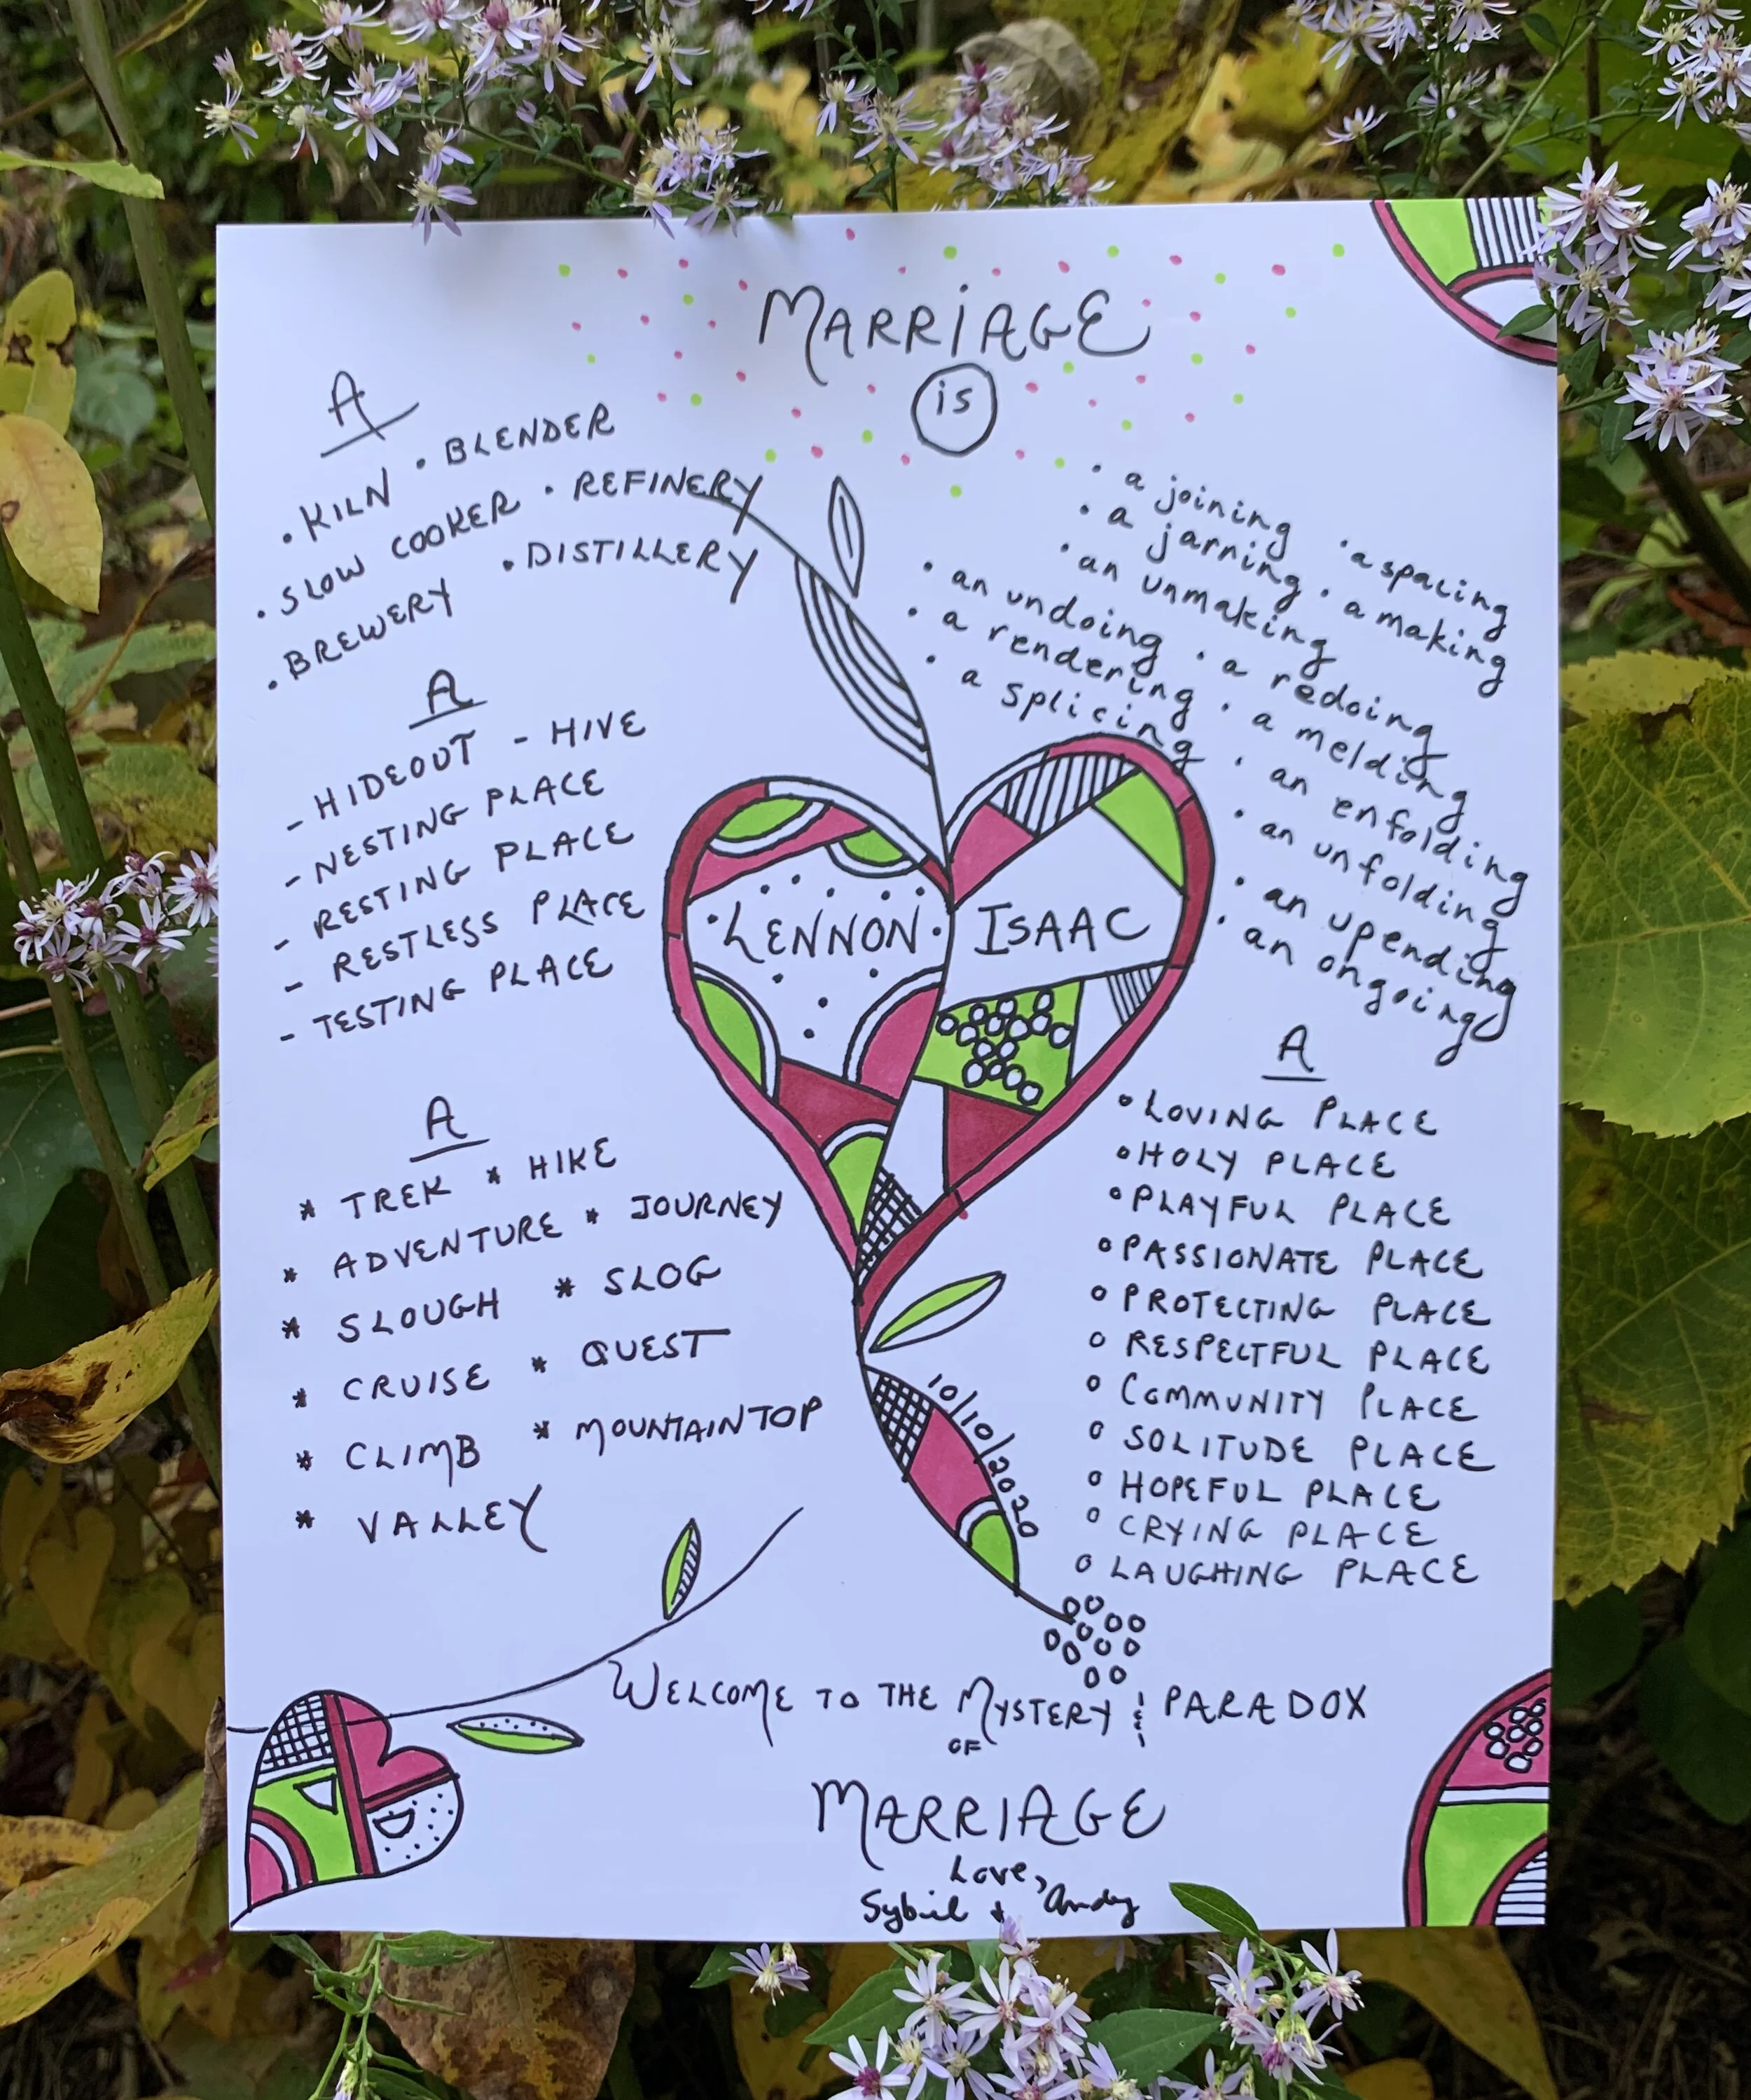 MARRIAGE
is
A
• KILN • BLENDER
• SLOW COOKER • REFINERY
• BREWERY • DISTILLERY
A
- HIDEOUT - HIVE
- NESTING PLACE
- RESTING PLACE
- RESTLESS PLACE
- TESTING PLACE
A
* TREK * HIKE
* ADVENTURE * JOURNEY
* SLOUGH * SLOG
* CRUISE * QUEST
* CLIMB * MOUNTAINTOP
* VALLEY
• a joining • a spacing
• a jarring • a making
• an unmaking
• an undoing • a redoing
• a rendering • a melding
• a splicing • an enfolding
• an unfolding
• an upending
• an ongoing
LENNON ISAAC
A
• LOVING PLACE
• HOLY PLACE
• PLAYFUL PLACE
• PASSIONATE PLACE
• PROTECTING PLACE
• RESPECTFUL PLACE
• COMMUNITY PLACE
• SOLITUDE PLACE
• HOPEFUL PLACE
• CRYING PLACE
• LAUGHING PLACE
10/10/2020
WELCOME TO THE MYSTERY & PARADOX
OF
MARRIAGE
Love,
Sybil + Andy